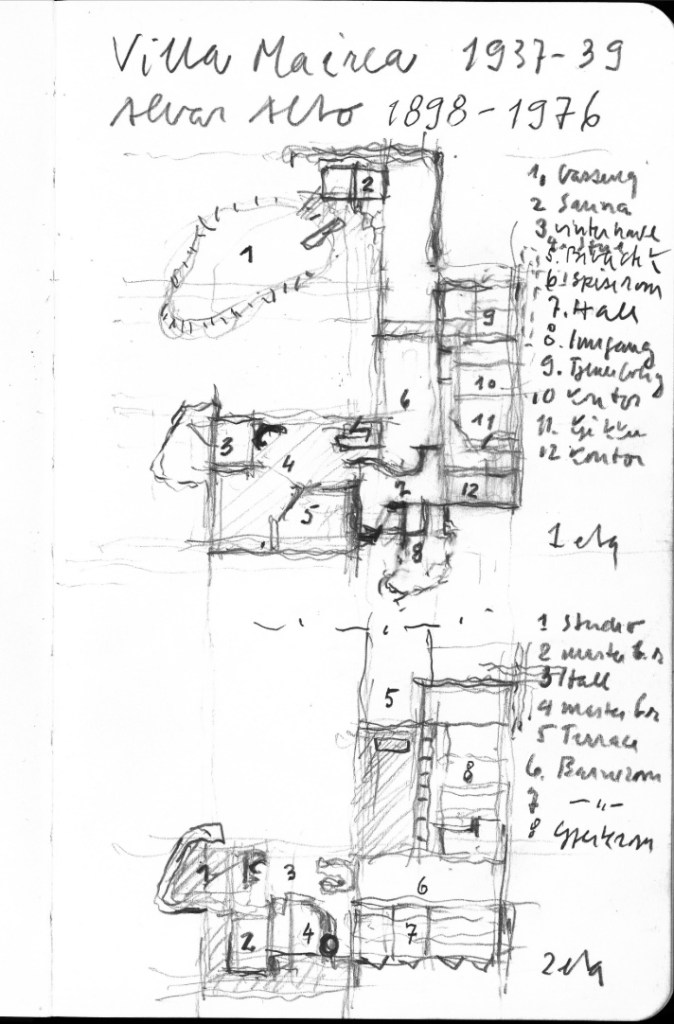 Villa Mairea 1937-39
Alvar Alto 1898-1976
1,
2 Sauna
3 vinterhave
4. Stue
5. Bibliotek
6. Spiserom
7. Hall
8. Inngang
9.
10 Kontor
11.
12 Kontor
1 etg
1 Studio
2 master b.r
3 Hall
4 master b.r
5 Terrace
6. Barnerom
7 -"-
8 Gjesterom
2 etg
1
2
3
4
5
6
7
8
9
10
11
12
1
2
3
4
5
6
7
8